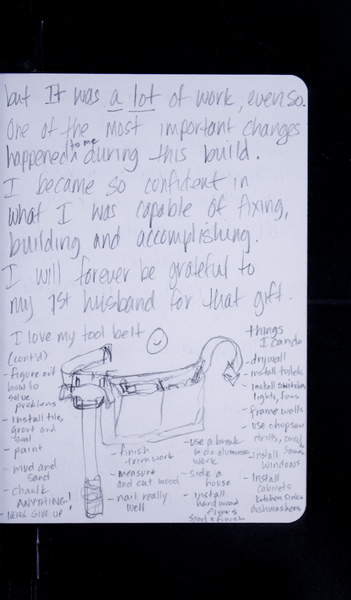 but It was a lot of work, even so.
One of the most important changes
happened to me during this build.
I became so confident in
what I was capable of fixing,
building and accomplishing.
I will forever be grateful to
my 1st husband for that gift.
I love my tool belt
things
I can do
- drywall
- install toilets
- Install switches
lights, fans
- frame walls
- use chopsaw
drills,
- Install
windows
- Install
cabinets
kitchen sinks
dishwashers
(cont'd)
- figure out
how to
solve
problems
- install tile,
grout and
seal
- paint
- mud and
sand
- chaulk
ANYTHING!
- NEVER GIVE UP
- finish
trimwork
- measure
and cut wood
- nail really
well
- use a break
to do aluminum
work
- side a
house
- install
hardwood
floors
sand & finish